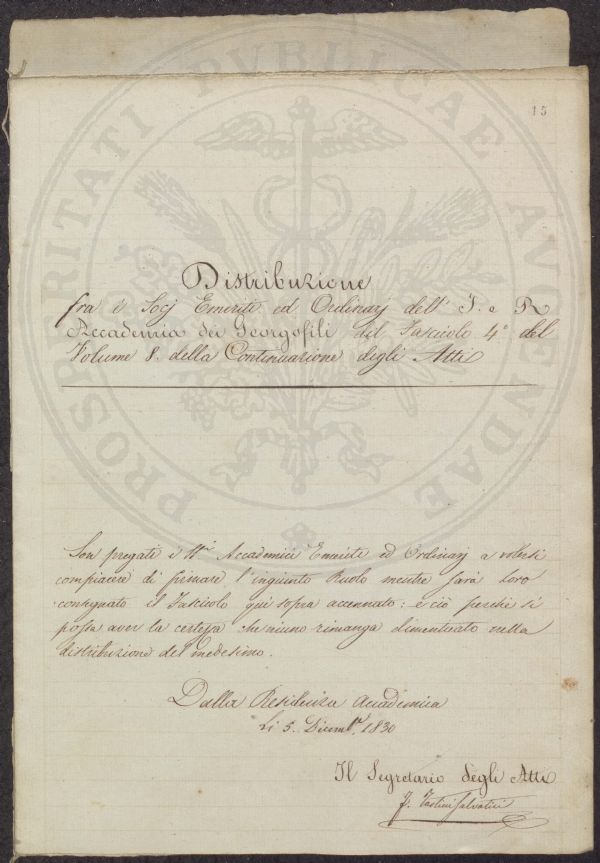 PROSPERITATI PVBLICAE AVGENDAE
15
Distribuzione
fra i Socj Emeriti ed Ordinarj dell' I. e R.
Accademia dei Georgofili del Fascicolo 4° del
Volume 8. della Continuazione degli Atti
Son pregati i SS.ri Accademici Emeriti ed Ordinarj a volersi
compiacere di firmare l'ingiunto Ruolo mentre sarà Loro
consegnato il Fascicolo quì sopra accennato: e ciò perchè si
possa aver la certezza che niuno rimanga dimenticato nella
distribuzione del medesimo.
Dalla Residenza Accademica
Li 5. Dicembre 1830
Il Segretario degli Atti